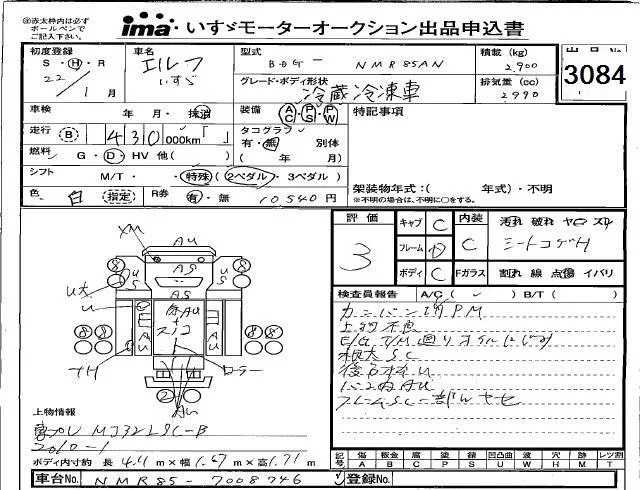 ※赤太枠内は必ず
ボールペンで
ご記入下さい。
ima いすゞモーターオークション出品申込書
初度登録 S・H・R 22/1月
車名 エルフ いすゞ
型式 BDG- NMR85AN
積載(kg) 2,900
グレード・ボディ形状 冷蔵冷凍車
排気量(cc) 2990
出品No. 3084
車検 年 月・抹消
装備 AC PS PW
特記事項
走行 B 430 000km「 」
タコグラフ 有・無 別体
( 年 月)
燃料 G・D・HV 他( )
シフト M/T・ 特殊( 2ペダル・3ペダル)
架装物年式:( 年式)・不明
※不明の場合は、不明に○をする。
色 白 (指定) R券 有・無 10540円
評価 3
キャブ C 内装 C 汚れ 破れ ヤロ スレ
フレーム シートコゲH
ボディ C Fガラス 割れ 線 点傷 イバリ
検査員報告 A/C( ✓ ) B/T( )
上物不良
E/G T/M廻りオイルにじみ
根太SC
フレームSC一部ムヤセ
XM
AU
AS
US
US
AS
U大
U
AU
AU
スノコ
ローラー
AU
上物情報
MJ32LSC-B
2010-1
ボディ内寸約 長 4.41 m×幅 1.67 m×高 1.71 m
記号 傷 板金 腐 塗装 錆 凹凸曲 波 穴 跡 レツ割
A B C P S U W H M T
車台No. NMR85-7008746 登録No.